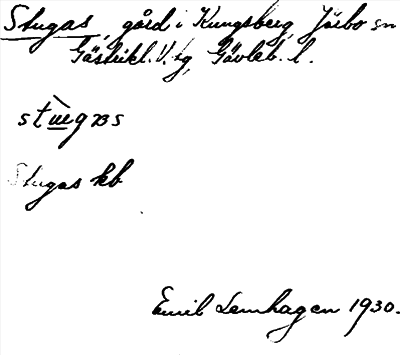 Stugas, gård i Kungsberg, Järbo sn
Gästrikl. V. tg, Gävleb. l.
Stugas kb
Emil Lemhagen 1930.